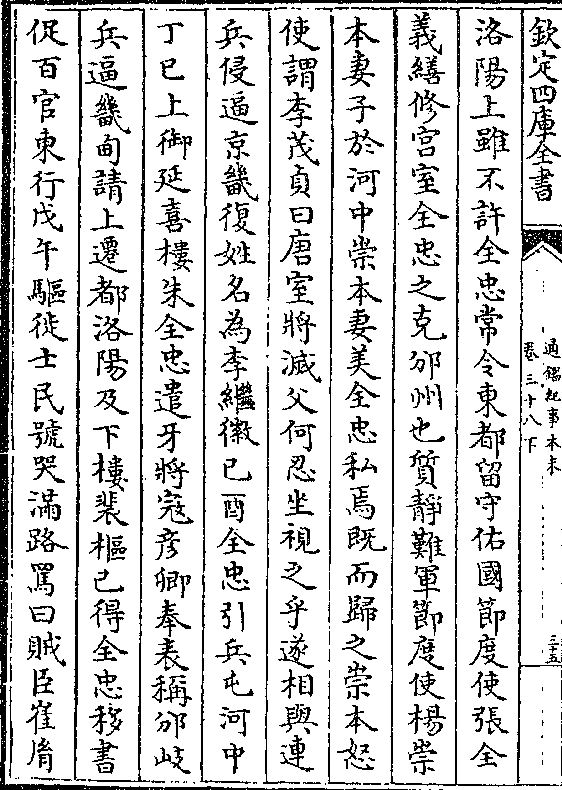 欽定四庫全書
通鑑紀事本末
卷三十八下
三十五
洛陽上雖不許全忠常令東都留守佑國節度使張全
義繕修宫室全忠之克邠州也質靜難軍節度使楊崇
本妻子於河中崇本妻美全忠私焉既而歸之崇本怒
使謂李茂貞曰唐室將滅父何忍坐視之乎遂相與連
兵侵逼京畿復姓名為李繼徽己酉全忠引兵屯河中
丁巳上御延喜樓朱全忠遣牙將寇彦卿奉表稱邠岐
兵逼畿甸請上遷都洛陽及下樓裴樞已得全忠移書
促百官東行戊午驅徙士民號哭滿路罵曰賊臣崔胤